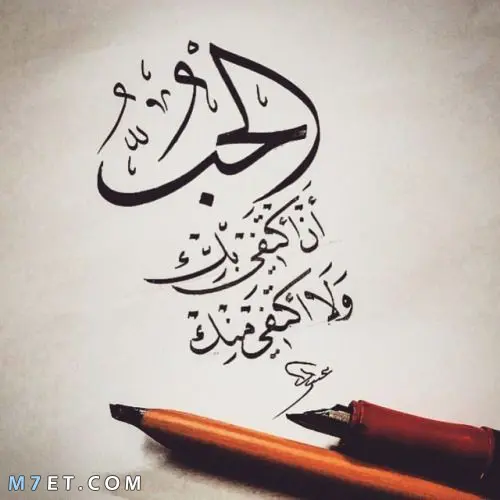 الحُبُّ
أَنْ أَكْتَفِيَ بِكِ
وَلَا أَكْتَفِي مِنْكِ
M7ET.COM